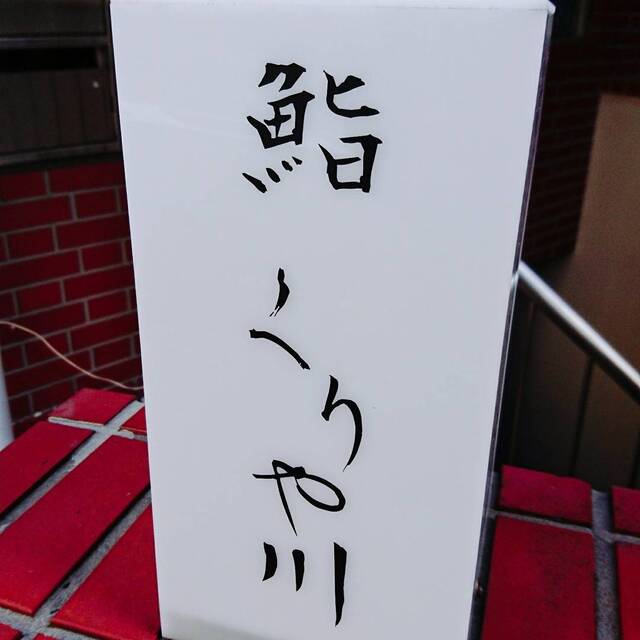 鮨 くりや川